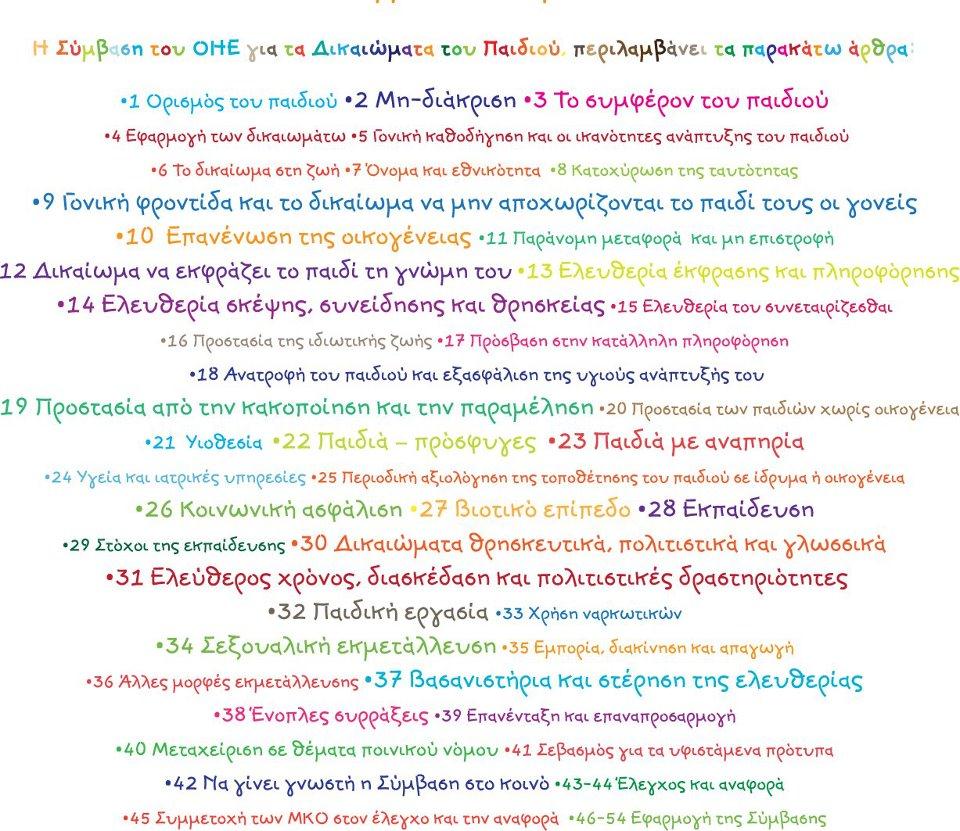 Η Σύμβαση του ΟΗΕ για τα Δικαιώματα του Παιδιού, περιλαμβάνει τα παρακάτω άρθρα:
•1 Ορισμός του παιδιού •2 Μη-διάκριση •3 Το συμφέρον του παιδιού
•4 Εφαρμογή των δικαιωμάτω •5 Γονική καθοδήγηση και οι ικανότητες ανάπτυξης του παιδιού
•6 Το δικαίωμα στη ζωή •7 Όνομα και εθνικότητα •8 Κατοχύρωση της ταυτότητας
•9 Γονική φροντίδα και το δικαίωμα να μην αποχωρίζονται το παιδί τους οι γονείς
•10 Επανένωση της οικογένειας •11 Παράνομη μεταφορά και μη επιστροφή
12 Δικαίωμα να εκφράζει το παιδί τη γνώμη του •13 Ελευθερία έκφρασης και πληροφόρησης
•14 Ελευθερία σκέψης, συνείδησης και θρησκείας •15 Ελευθερία του συνεταιρίζεσθαι
•16 Προστασία της ιδιωτικής ζωής •17 Πρόσβαση στην κατάλληλη πληροφόρηση
•18 Ανατροφή του παιδιού και εξασφάλιση της υγιούς ανάπτυξής του
19 Προστασία από την κακοποίηση και την παραμέληση •20 Προστασία των παιδιών χωρίς οικογένεια
•21 Υιοθεσία •22 Παιδιά – πρόσφυγες •23 Παιδιά με αναπηρία
•24 Υγεία και ιατρικές υπηρεσίες •25 Περιοδική αξιολόγηση της τοποθέτησης του παιδιού σε ίδρυμα ή οικογένεια
•26 Κοινωνική ασφάλιση •27 Βιοτικό επίπεδο •28 Εκπαίδευση
•29 Στόχοι της εκπαίδευσης •30 Δικαιώματα θρησκευτικά, πολιτιστικά και γλωσσικά
•31 Ελεύθερος χρόνος, διασκέδαση και πολιτιστικές δραστηριότητες
•32 Παιδική εργασία •33 Χρήση ναρκωτικών
•34 Σεξουαλική εκμετάλλευση •35 Εμπορία, διακίνηση και απαγωγή
•36 Άλλες μορφές εκμετάλλευσης •37 Βασανιστήρια και στέρηση της ελευθερίας
•38 Ένοπλες συρράξεις •39 Επανένταξη και επαναπροσαρμογή
•40 Μεταχείριση σε θέματα ποινικού νόμου •41 Σεβασμός για τα υφιστάμενα πρότυπα
•42 Να γίνει γνωστή η Σύμβαση στο κοινό •43-44 Έλεγχος και αναφορά
•45 Συμμετοχή των ΜΚΟ στον έλεγχο και την αναφορά •46-54 Εφαρμογή της Σύμβασης